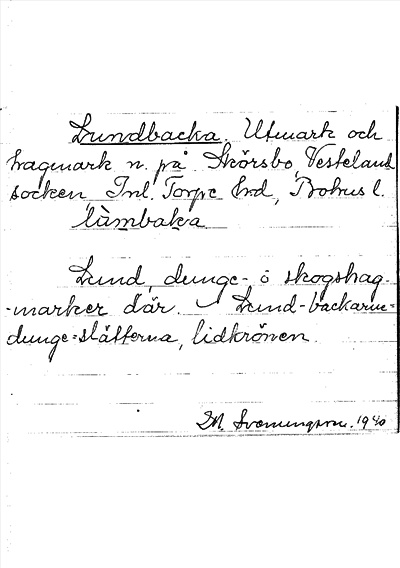 Lundbacka. Utmark och
hagmark n. på Skörsbo, Vesteland
socken Inl. Torpe hrd, Bohus l.
låmbaka
Lund, dunge- o skogshag-
-marker där. Lund-backarne=
dunge=slätterna, lidkrönen.
M. 1940